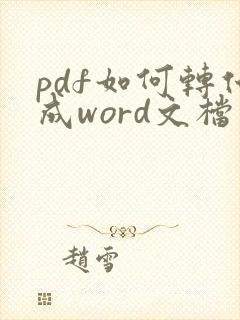 pdf如何轉
成word文檔
趙雪